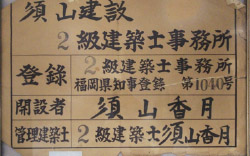 須山建設
2級建築士事務所
登録 2級建築士事務所
福岡県知事登録 第1040号
開設者 須山香月
管理建築士 2級建築士須山香月